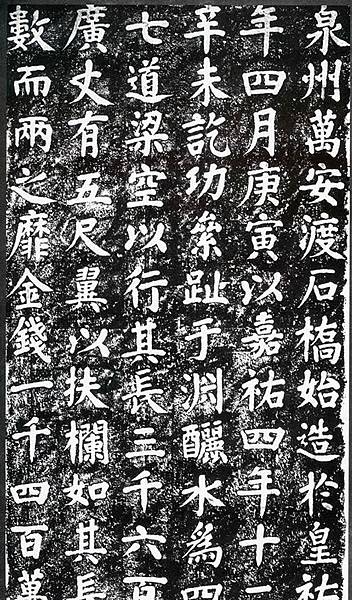 泉州萬安渡石橋始造於皇祐
年四月庚寅以嘉祐四年十二
辛未訖功絫趾于淵釃水為四
七道梁空以行其長三千六百
廣丈有五尺翼以扶欄如其長
數而兩之靡金錢一千四百萬